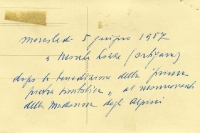 mercoledì 5 giugno 1957
a
dopo la benedizione della prima
pietra simbolica, al monumento
della Madonna degli Alpini